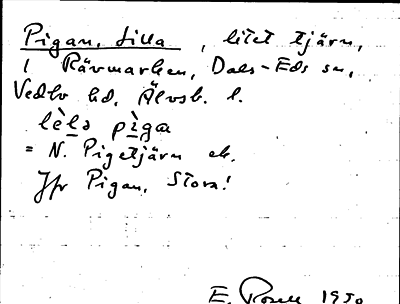 Pigan, Lilla, litet tjärn,
i Rävmarken, Dals-Eds sn,
Vedbo hd, Älvsb. l.
lè̱lə pì̱ga
= N. Pigetjärn ek.
Jfr Pigan, Stora!
E. Rosell 1930